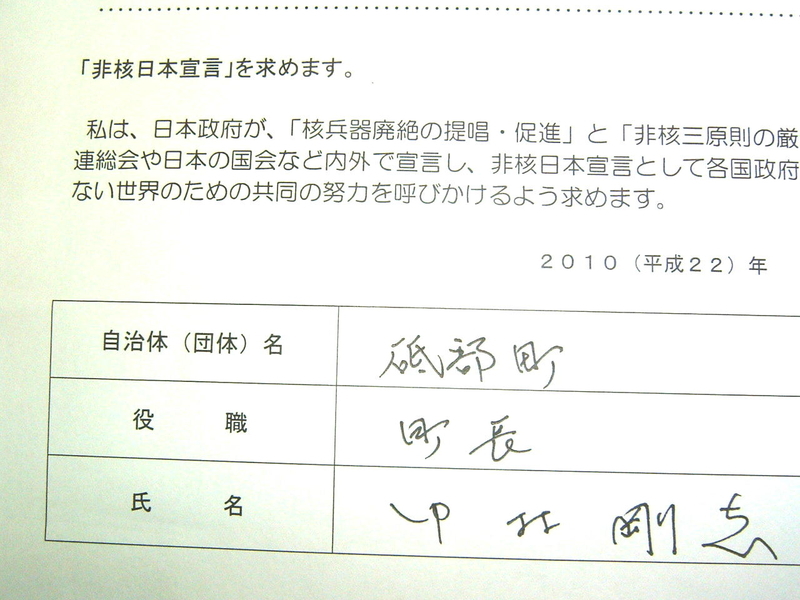 「非核日本宣言」を求めます。
私は、日本政府が、「核兵器廃絶の提唱・促進」と「非核三原則の厳
連総会や日本の国会など内外で宣言し、非核日本宣言として各国政府
ない世界のための共同の努力を呼びかけるよう求めます。
2010（平成22）年
自治体（団体）名 砥部町
役職 町長
氏名 中村剛志